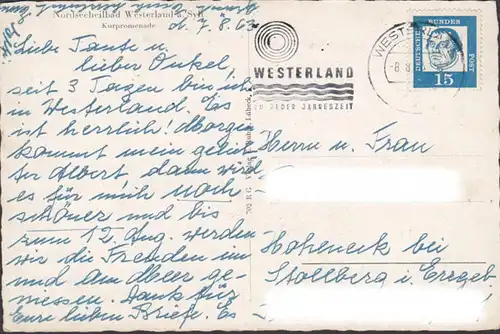 Nordseeheilbad Westerland a. Sylt
Kurpromenade
d. 7.8.63
Liebe Tante u.
lieber Onkel,
seit 3 Tagen bin ich
in Westerland. Es
ist herrlich! Morgen
kommt mein
Albert, dann wird
es für mich noch
schöner und bis
zum 12. Aug. werden
wir die Freuden im
und am Meer ge-
niessen. Dank für
Eure lieben Briefe. Es
WESTERLAND
ZU JEDER JAHRESZEIT
WESTERLAND
-8. 8.
DEUTSCHE BUNDESPOST
15
702 R G
Lübeck
Herrn u. Frau
Hoheneck bei
Stollberg i. Erzgeb.